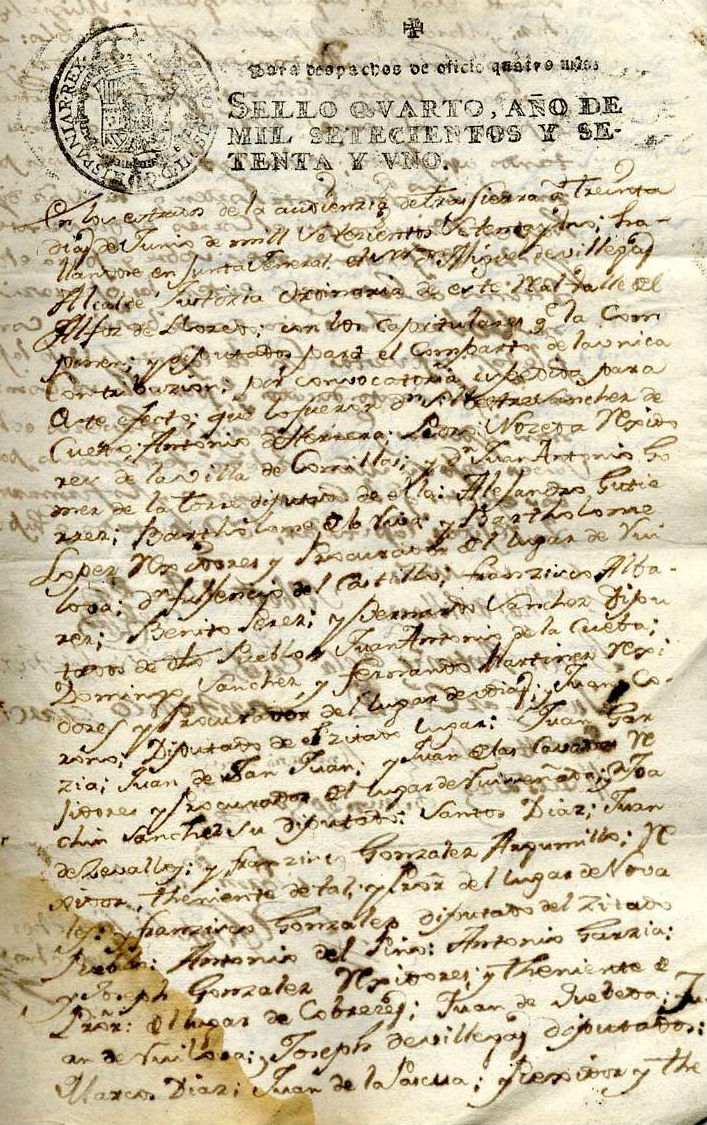 Para despachos de oficio quatro mrs.
SELLO QVARTO, AÑO DE
MIL SETECIENTOS Y SE-
TENTA Y VNO.
HISPANIAR.REX
En los estrados de la audienzia de trasierra a treinta
dias de Junio de mill setezientos setenta y uno; ha-
llandose en Junta General el Sr Dn Miguel de Villegas
Alcalde Justizia ordinaria de este Real Valle el
Alfoz de Lloredo; con los capitulares qe la Com
ponen; y Diputados para el comparto de la unica
Contribuzion; por convocatoria expedida para
este efecto; que lo fueron dn Silbestre Sanchez de
Cueto; Antonio de Herrera; Pedro Noreña Rexido
res de la Villa de Comillas; y dn Juan Antonio Go
mez de la torre diputado de ella; Alejandro Gutie
rrez; Bartholome de la Vega y Bartholome
Lopez Rexidores y Procurador del lugar de Rui
loba; dn del Castillo; Franzisco Alba-
rez; Benito Perez; y Bernardo Sanchez Dipu
tados de dho Pueblo; Juan Antonio de la Cueba;
Domingo Sanchez, y Fernando Martinez Rexi
dores y Procurador del lugar de Udias; Juan Co-
rono, Diputado de el Zitado lugar; Juan Gar
zia; Juan de San Juan, y Juan de las Cavadas Re
jidores y Procurador del lugar de Ruiseñada; y Joa
chin Sanchez su Diputado; Santos Diaz; Juan
de Zevallos; y Franzisco Gonzalez Argumillo; Re
xidor, theniente de tal, y Pror del lugar de Nova
les; y Franzisco Gonzalez diputado del Zitado
Pueblo; Antonio del Pino; Antonio Garzia;
y Joseph Gonzalez Rexidores; y theniente de
Pror: del lugar de Cobreces; Juan de Quebeda; Ju-
an de Ruiloba; y Joseph de Villegas diputados;
Marcos Diaz; Juan de la Pascua; y Rexidor y the